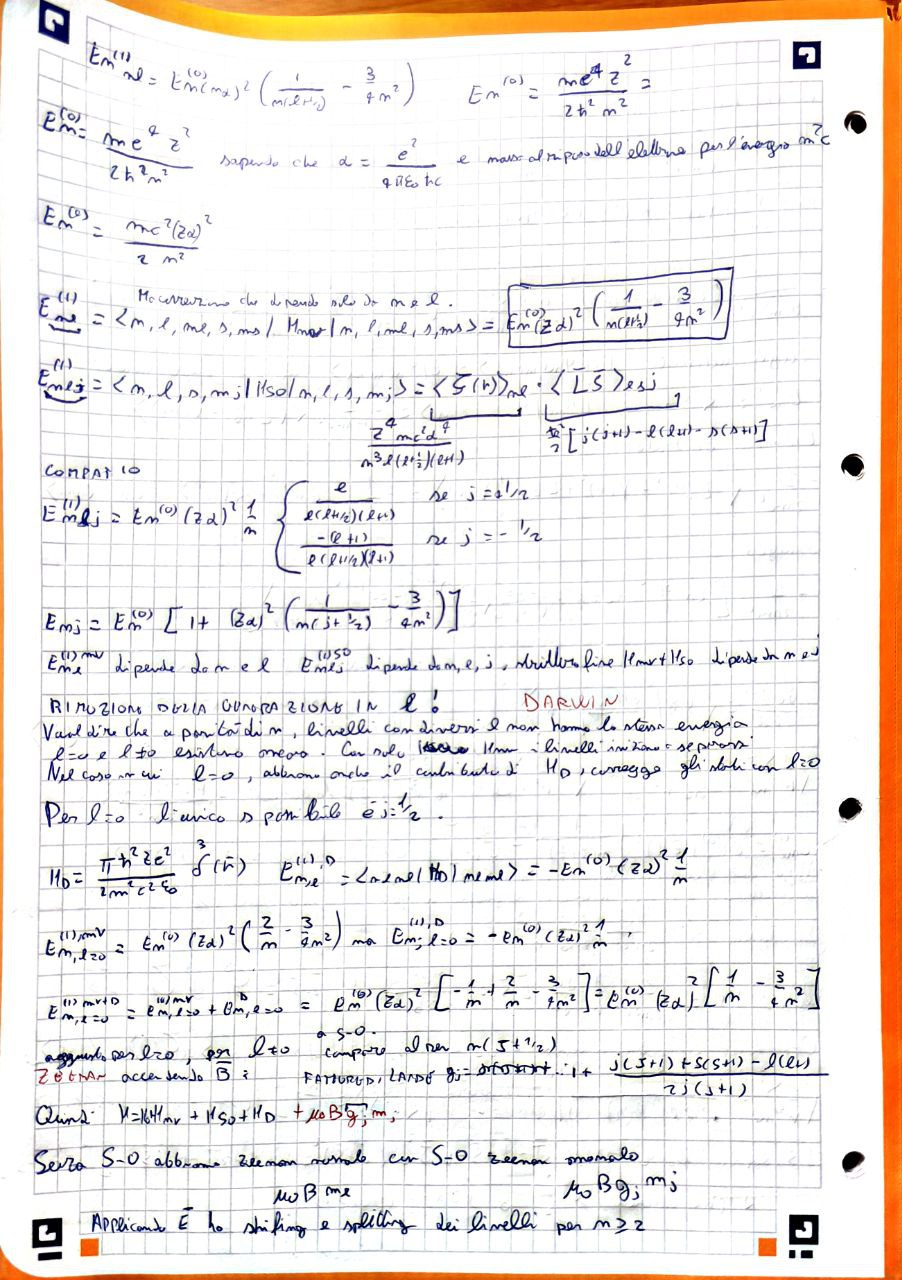 En^(1) nl = En^(0) (nα)² (1/n(l+1/2) − 3/4n²) En^(0) = me⁴ Z²/2ħ² n² =
En^(0) = me⁴ Z²/2ħ²n² sapendo che α = e²/4πε₀ħc e massa al riposo dell'elettrone per l'energia m²c
En^(0) = mc²(Zα)²/2 n²
Ho correzione che dipende solo da n e l.
Enl^(1) = <n, l, ml, s, ms | Hmv | n, l, ml, s, ms> = En^(0) (Zα)² (1/n(l+½) − 3/4n²)
Enlj^(1) = <n, l, s, mj | HSO | n, l, s, mj> = <ξ(r)>nl · <L̄ S̄>lsj
Z⁴ mc²α⁴/n³ l(l+½)(l+1) ħ²/2 [j(j+1) − l(l+1) − s(s+1)]
COMPATTO
Enlj^(1) = En^(0) (Zα)² 1/n { l/l(l+1/2)(l+1) se j = +1/2
−(l+1)/l(l+1/2)(l+1) se j = −1/2
Enj = En^(0) [1 + (Zα)² (1/n(j+½) − 3/4n²)]
Enl^(1)mv dipende da n e l Enlj^(1)SO dipende da n, l, j, struttura fine Hmv + HSO dipende da n e j
RIMOZIONE DELLA DEGENERAZIONE IN l! DARWIN
Vuol dire che a parità di n, livelli con diversi l non hanno la stessa energia
l=0 e l≠0 esistono ancora. Con solo Hmv i livelli iniziano a separarsi
Nel caso in cui l=0, abbiamo anche il contributo di HD, corregge gli stati con l=0
Per l=0 l'unico s possibile è j=1/2.
HD = πħ²Ze²/2m²c²ε₀ δ³(r̄) En,l^(1),D = <nlml|HD|nlml> = −En^(0) (Zα)² 1/n
En,l=0^(1)mv = En^(0) (Zα)² (2/n − 3/4n²) ma En,l=0^(1),D = −En^(0) (Zα)² 1/n
En,l=0^(1)mv+D = En,l=0^(1)mv + En,l=0^D = En^(0) (Zα)² [−1/n + 2/n − 3/4n²] = En^(0) (Zα)² [1/n − 3/4n²]
aggiunto per l=0, per l≠0 a S-O. compare al den n(J+1/2)
ZEEMAN accendendo B̄: FATTORE DI LANDÉ gj = 1 + j(J+1) + S(S+1) − l(l+1)/2j(J+1)
Quindi H = Hmv + HSO + HD + μ₀B gj mj
Senza S-O abbiamo zeeman normale con S-O zeeman anomalo
μ₀B ml μ₀Bgj mj
Applicando Ē ho shifting e splitting dei livelli per n ≥ 2